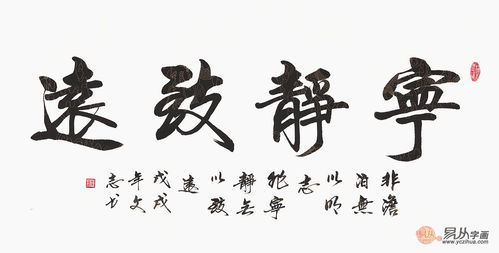 寧靜致遠
非澹
泊無
以明
志
非寧
靜无
以致
遠
戊戌
年文
志书
易从字画
www.yczihua.com